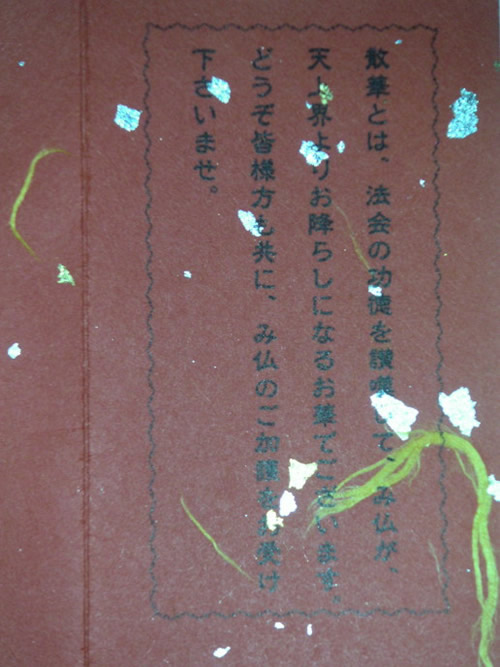 散華とは、法会の功徳を讃嘆して、み仏が、
天上界よりお降らしになるお華でございます。
どうぞ皆様方も共に、み仏のご加護をお受け
下さいませ。